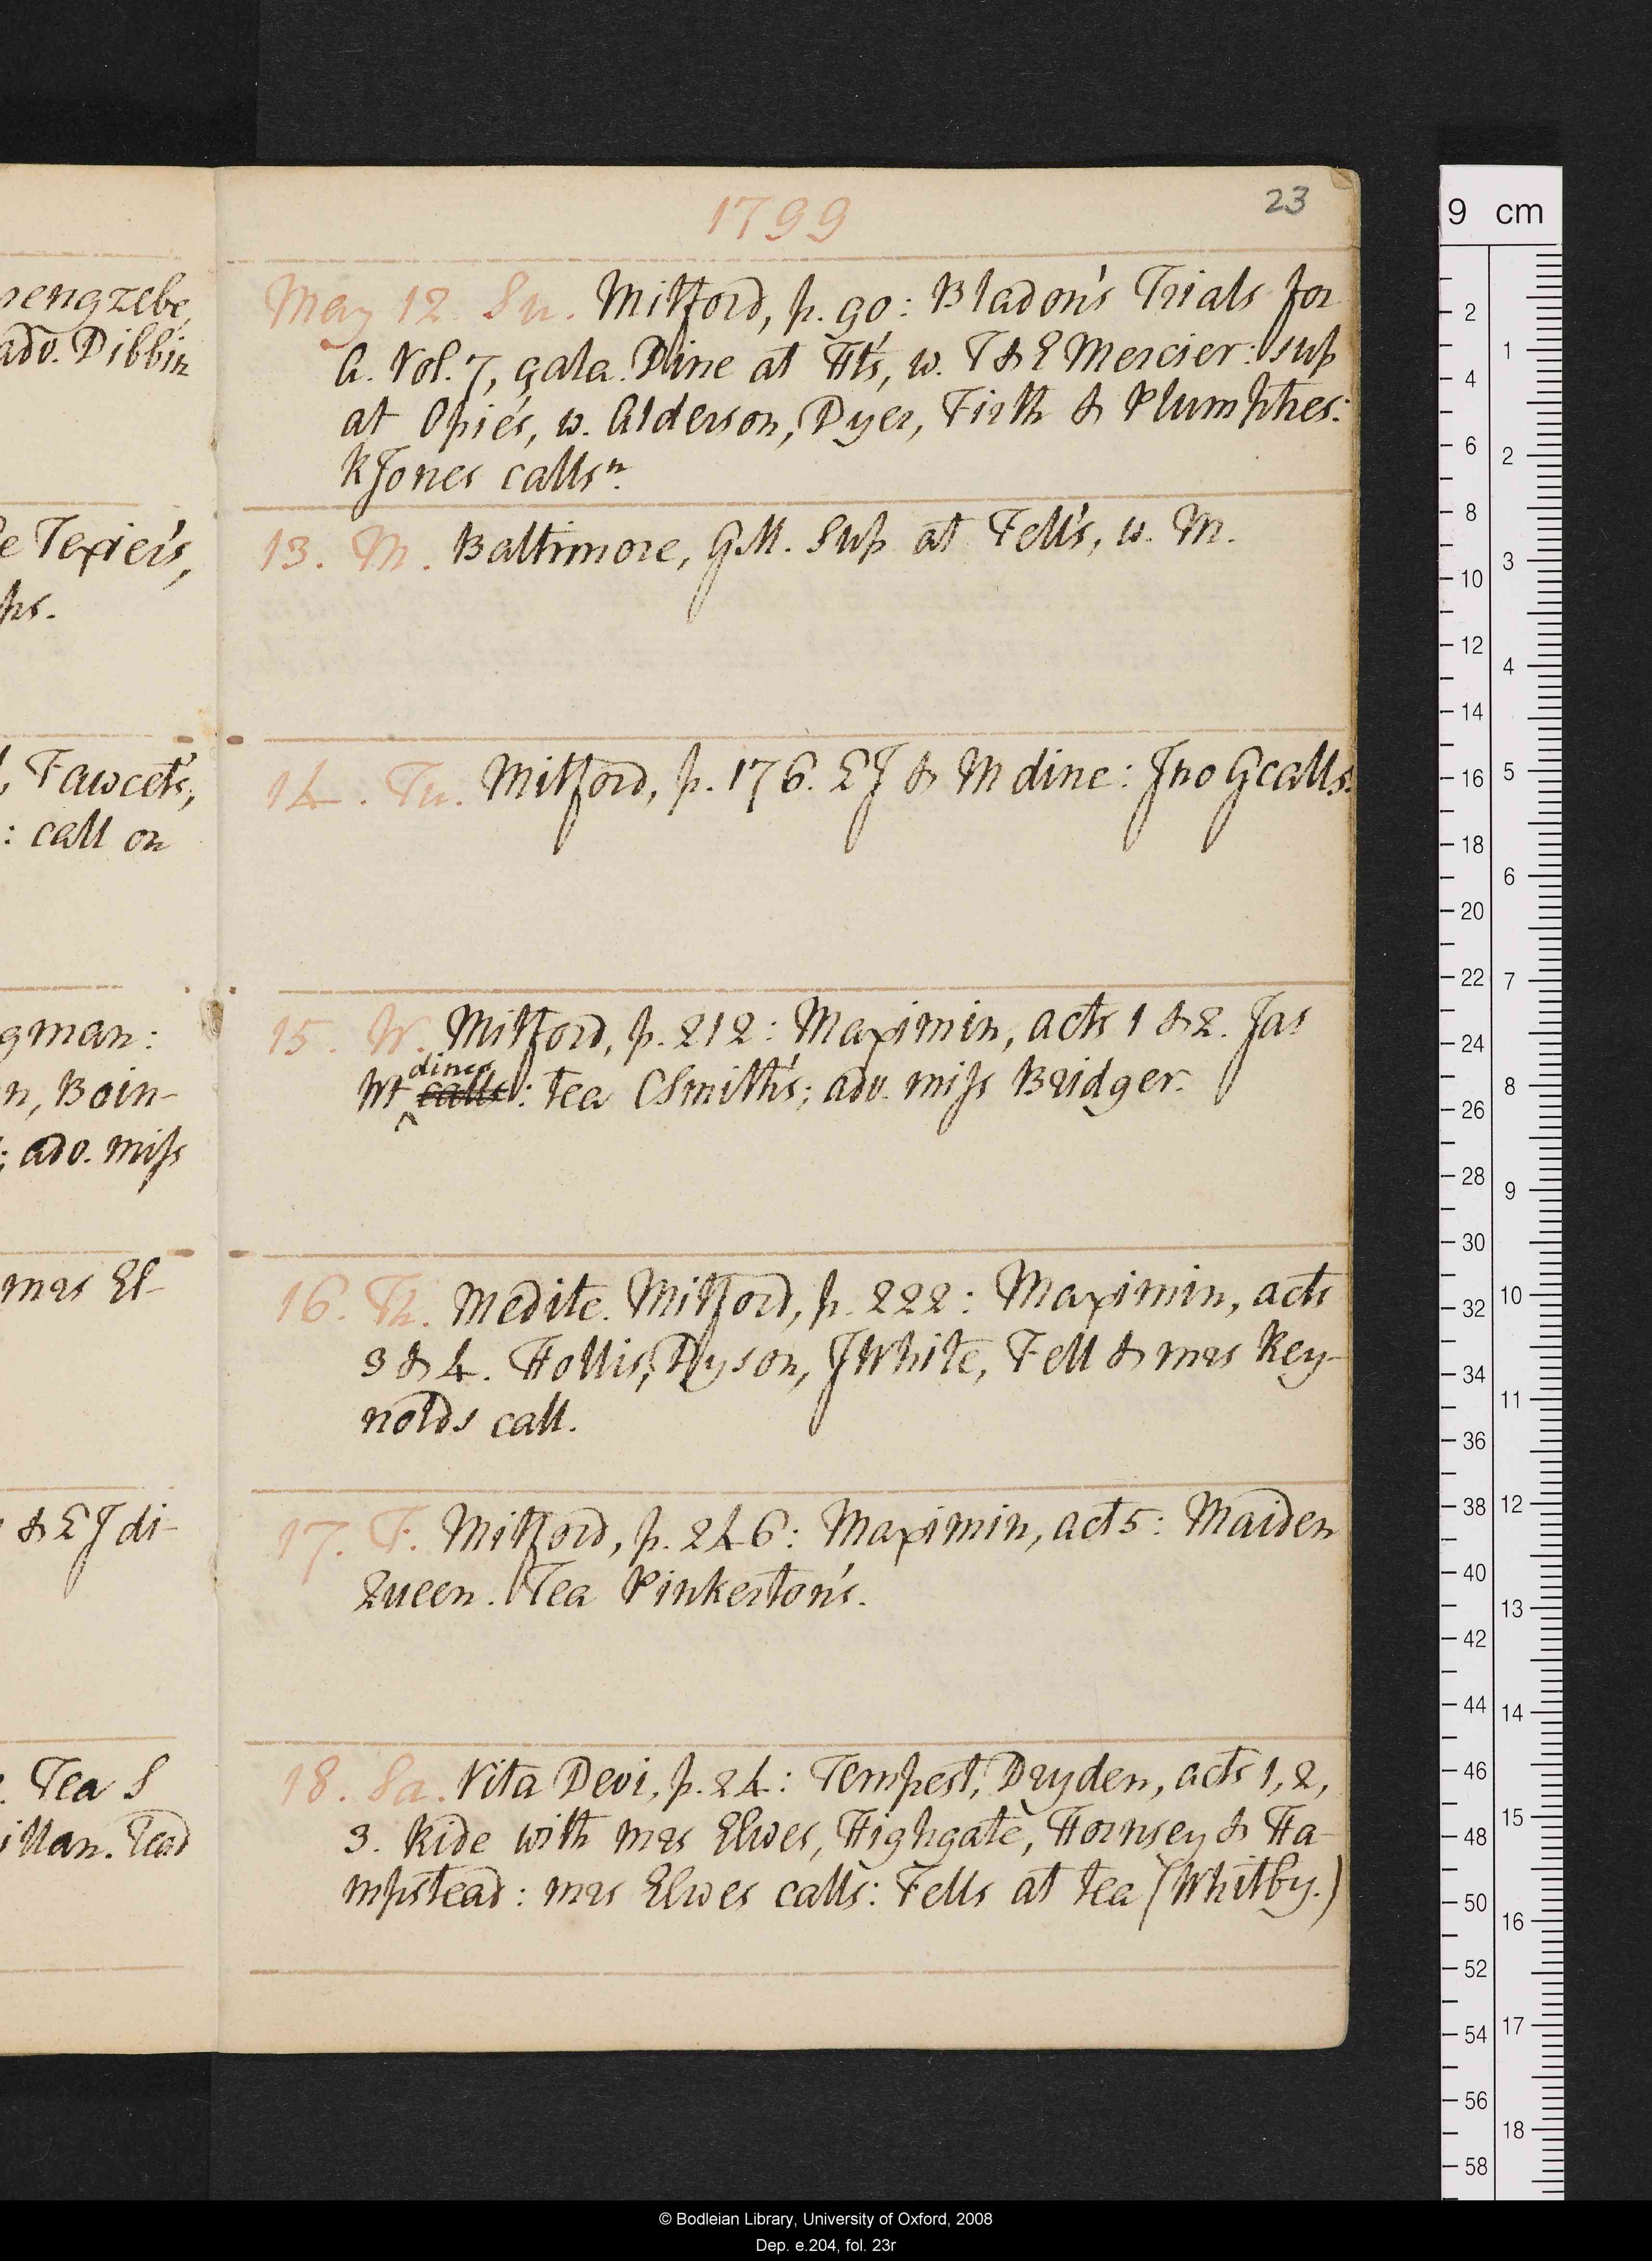 nengzebe,
adv. Dibbin
Texier's,
ps.
, Fawcet's,
: call on
gman:
n, Boin-
; adv. miss
mrs El-
& EJ di-
. Tea S
illan.
1799
23
May 12. Su. Mitford, p. 90: Bladon's Trials for
A. Vol. 7, gala. Dine at Ht's, w. T & E Mercier: sup
at Opie's, w. Alderson, Dyer, Firth & Plumptres:
R Jones calls n.
13. M. Baltimore, GM. Sup at Fell's, w. M.
14. Tu. Mitford, p. 176. EJ & M dine: Jno G calls.
15. W. Mitford, p. 212: Maximin, acts 1 & 2. Jas
dines
Wt calls: tea CSmith's; adv. miss Bridger.
16. Th. Medite. Mitford, p. 222: Maximin, acts
3 & 4. Hollis, Dyson, JWhite, Fell & mrs Rey-
nolds call.
17. F. Mitford, p. 246: Maximin, act 5: Maiden
Queen. Tea Pinkerton's.
18. Sa. Vita Devi, p. 24: Tempest, Dryden, acts 1, 2,
3. Ride with mrs Elwes, Highgate, Hornsey & Ha-
mpstead: mrs Elwes calls: Fells at tea (Whitby.)
9 cm
2
4
6
8
10
12
14
16
18
20
22
24
26
28
30
32
34
36
38
40
42
44
46
48
50
52
54
56
58
1
2
3
4
5
6
7
8
9
10
11
12
13
14
15
16
17
18
© Bodleian Library, University of Oxford, 2008
Dep. e.204, fol. 23r